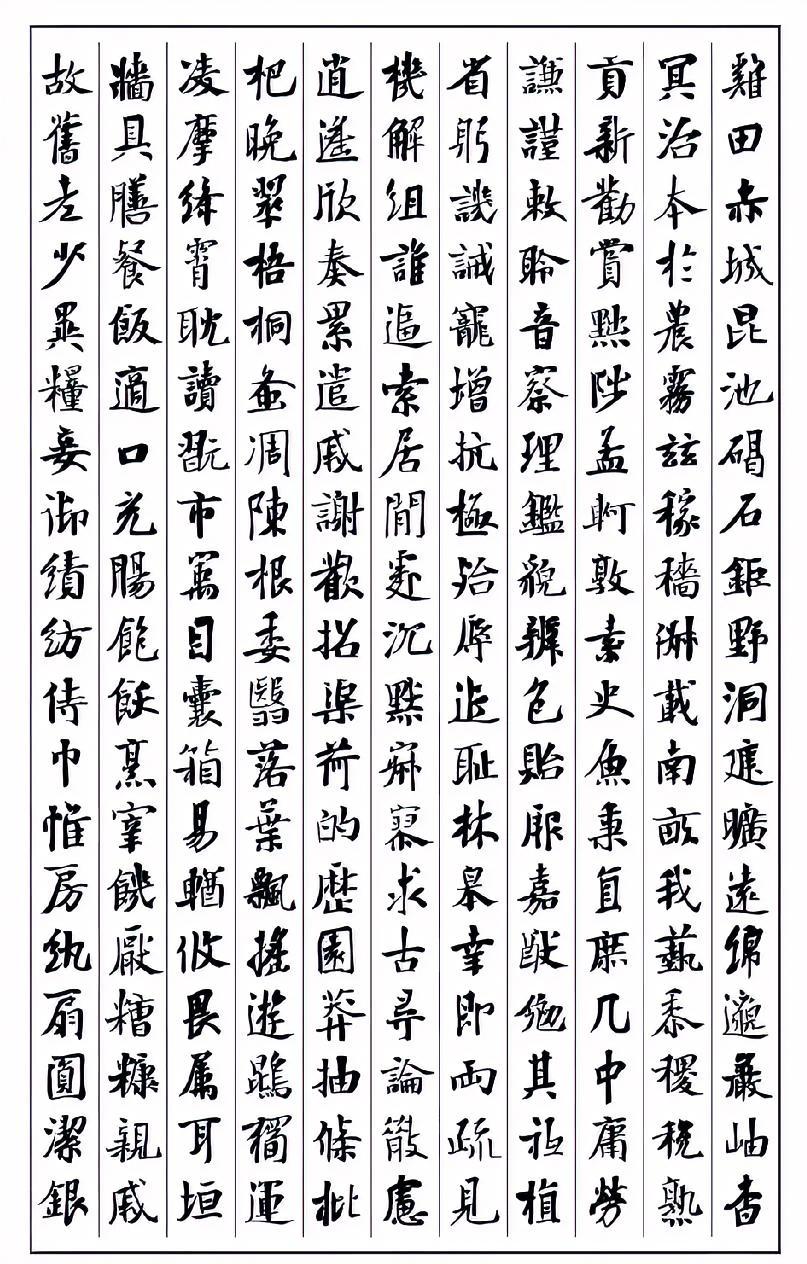 雞田赤城昆池碣石鉅野洞庭曠遠綿邈巖岫杳
冥治本於農務茲稼穡俶載南畝我藝黍稷稅熟
貢新勸賞黜陟孟軻敦素史魚秉直庶几中庸勞
謙謹敕聆音察理鑑貌辨色貽厥嘉猷勉其祗植
省躬譏誡寵增抗極殆辱近恥林皋幸即兩疏見
機解組誰逼索居閒處沉默寂寥求古尋論散慮
逍遙欣奏累遣戚謝歡招渠荷的歷園莽抽條枇
杷晚翠梧桐蚤凋陳根委翳落葉飄搖遊鵾獨運
凌摩絳霄耽讀翫市寓目囊箱易輶攸畏屬耳垣
牆具膳餐飯適口充腸飽飫烹宰饑厭糟糠親戚
故舊老少異糧妾御績紡侍巾帷房紈扇圓潔銀